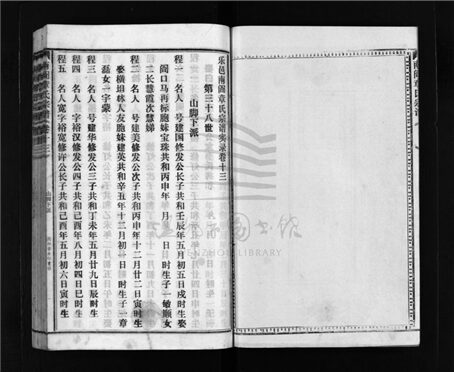 乐邑南阁章氏宗谱实录卷十三
第三十八世
山脚下派
程一 名人 号建国修发公长子共和壬辰年五月初五日戌时生娶
阎口马再标胞妹宝珠共和丙申年 月 日 时生子一敏顺女
二长慧霞次慧娣
程二 名人 号建美修发公次子共和丙申年十二月廿二日寅时生
娶横坦林人友胞妹建英共和辛丑年十二月初一日 时生子一章
磊女一字蒙
程三 名人 号建华修发公三子共和丁未年五月廿九日辰时生
程四 名人 字裕汉修发公四子共和己酉年八月初四日巳时生
程五 名人宽字裕宽修许公长子共和己酉年五月初六日寅时生
山脚下派
南阁章氏宗谱
LIBRARY